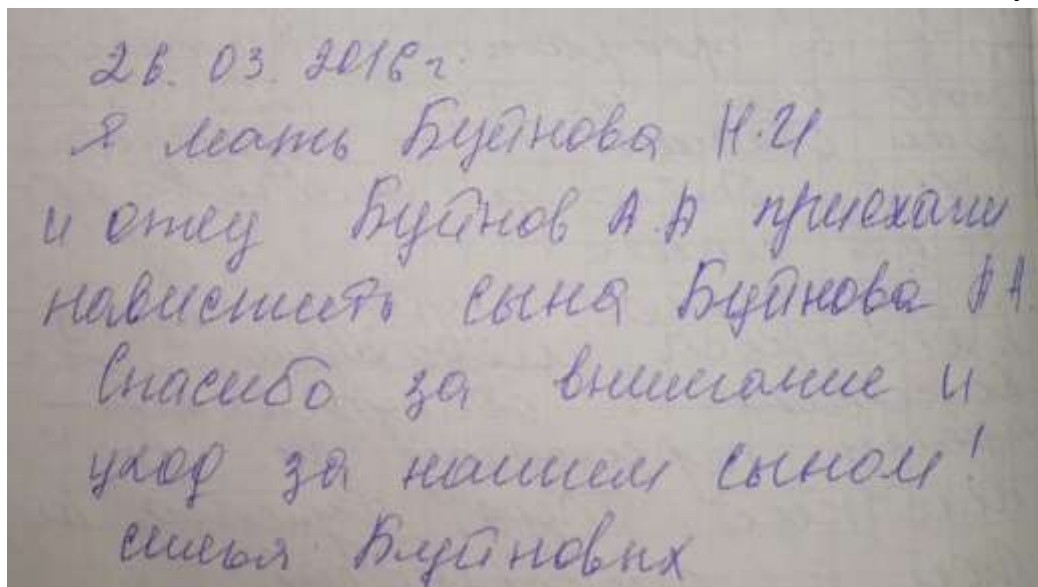 26. 03. 2016 г.
Я мать Буйнова Н.И
и отец Буйнов А.А приехали
навистить сына Буйнова АА.
Спасибо за внимание и
уход за нашим сыном!
семья Буйновых